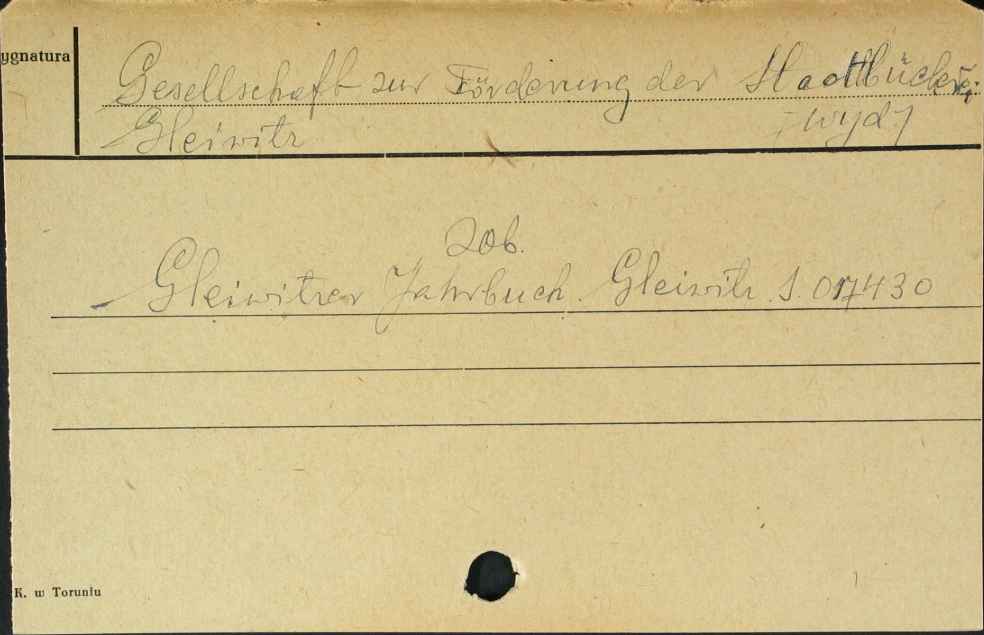 ygnatura
Gesellschaft zur Förderung der Stadtbücherei
Gleiwitz
[wyd]
zob.
Gleiwitzer Jahrbuch. Gleiwitz S. 017430
K. w Toruniu